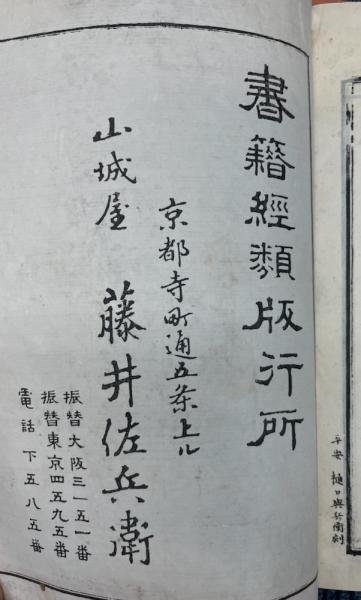 書籍經類版行所
京都寺町通五条上ル
山城屋 藤井佐兵衛
振替大阪三一五一番
振替東京四五九五番
電話 下五八五番
平安 樋口與兵衞刻